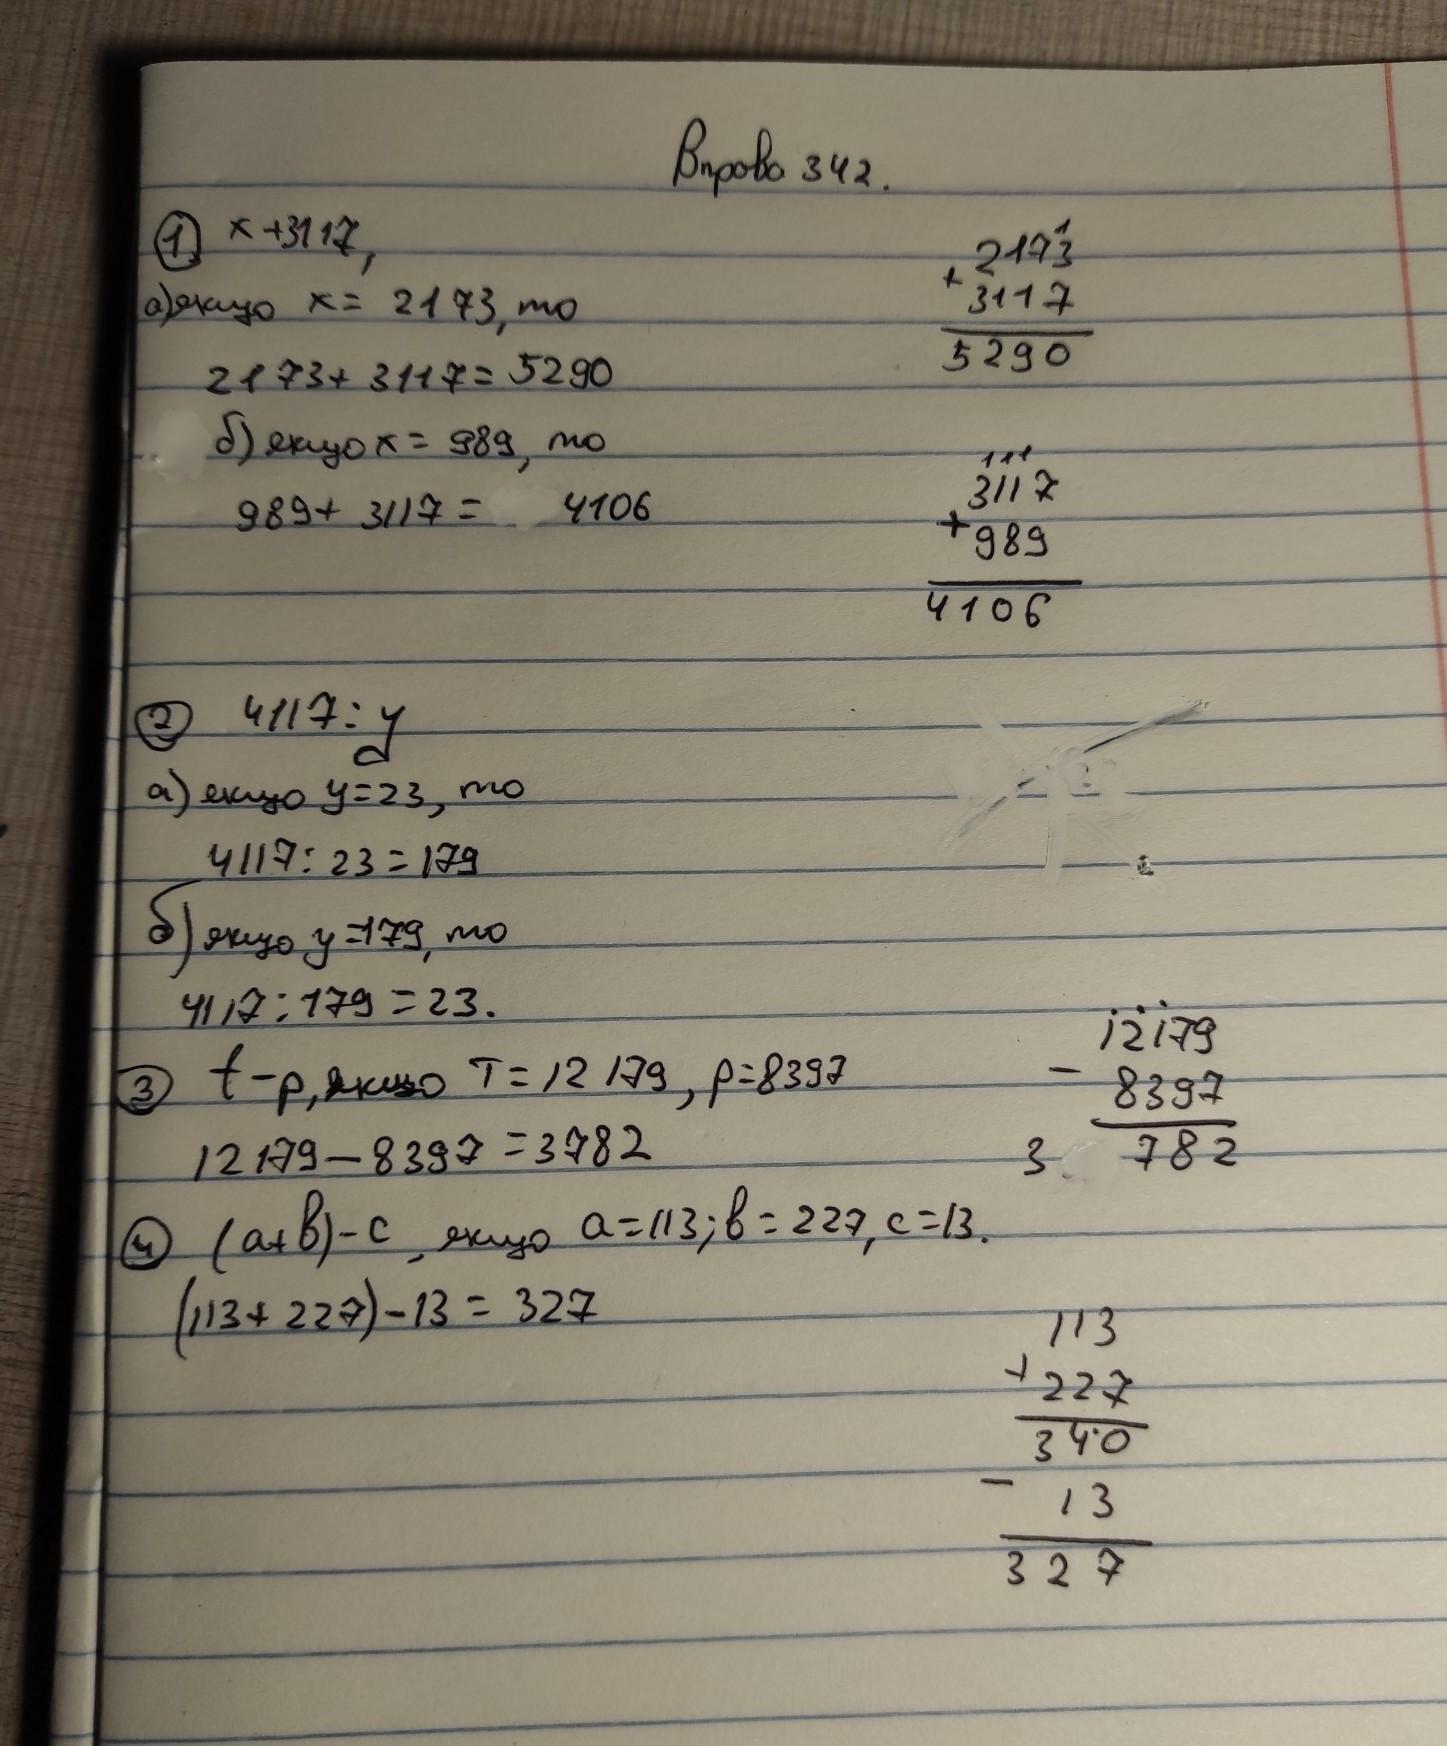 Вправа 342.
① x+3117,
а) якщо x = 2173, то
2173+3117=5290
б) якщо x = 989, то
989+3117= 4106
1
2173
+
3117
5290
111
3117
+
989
4106
② 4117:y
а) якщо y=23, то
4117:23=179
б) якщо y=179, то
4117:179=23.
③ t-p, якщо T=12179, p=8397
12179-8397=3782
12179
-
8397
3 782
④ (a+b)-c, якщо a=113; b=227, c=13.
(113+227)-13=327
113
+
227
340
-
13
327